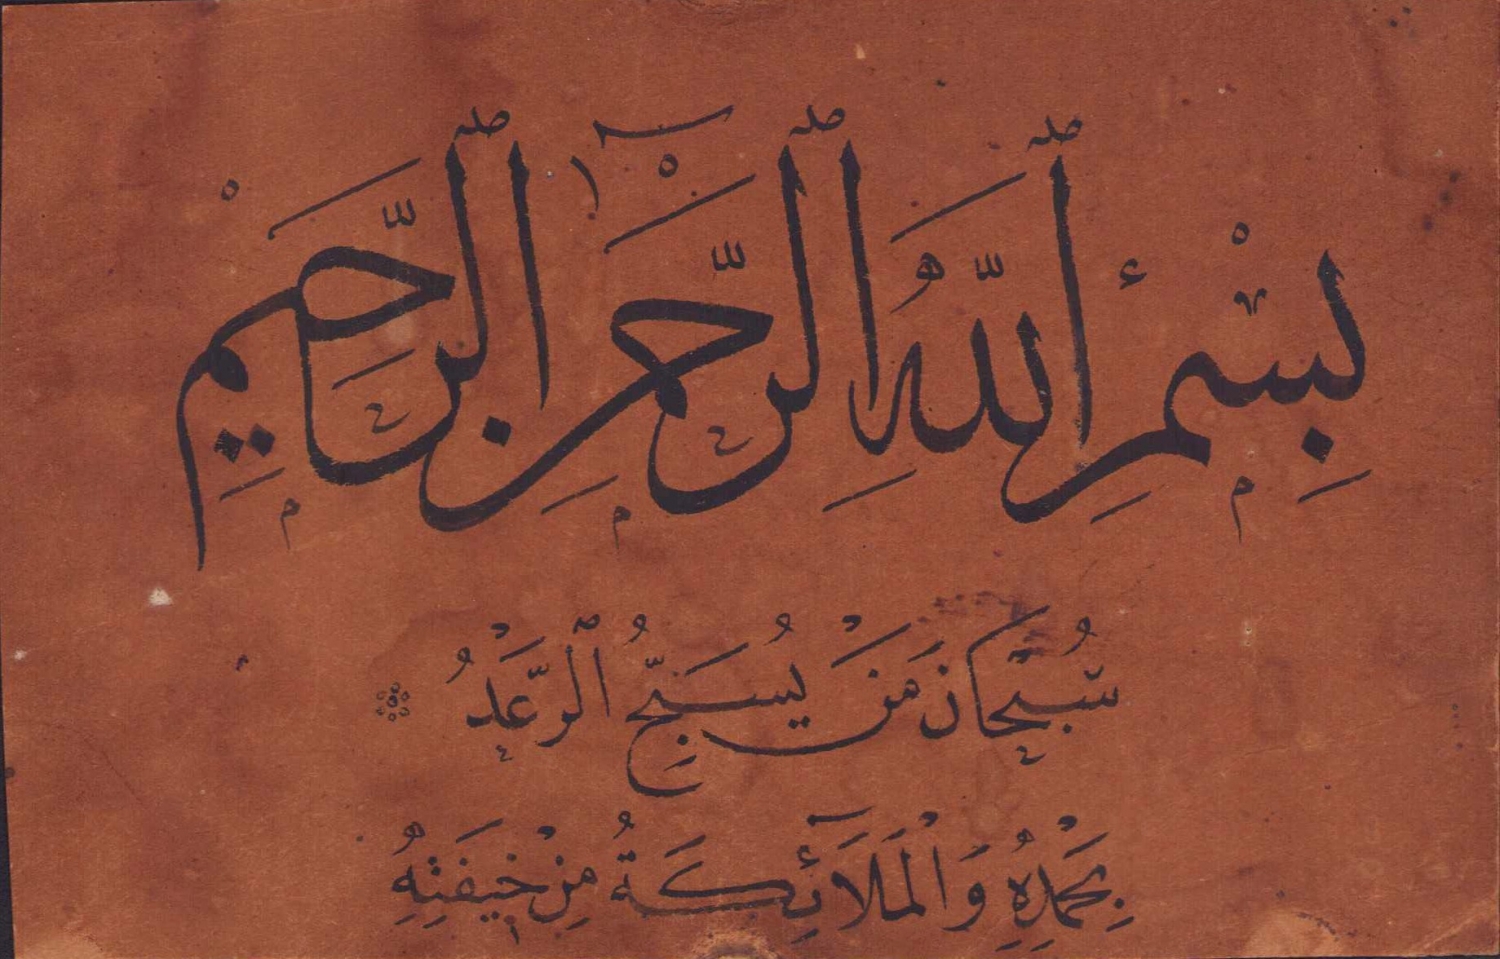 بِسْمِ ٱللَّهِ ٱلرَّحْمٰنِ ٱلرَّحِيْمِ
سُبْحَانَ مَنْ يُسَبِّحُ ٱلرَّعْدُ
بِحَمْدِهِ وَالْمَلَآئِكَةُ مِنْ خِيفَتِهِ